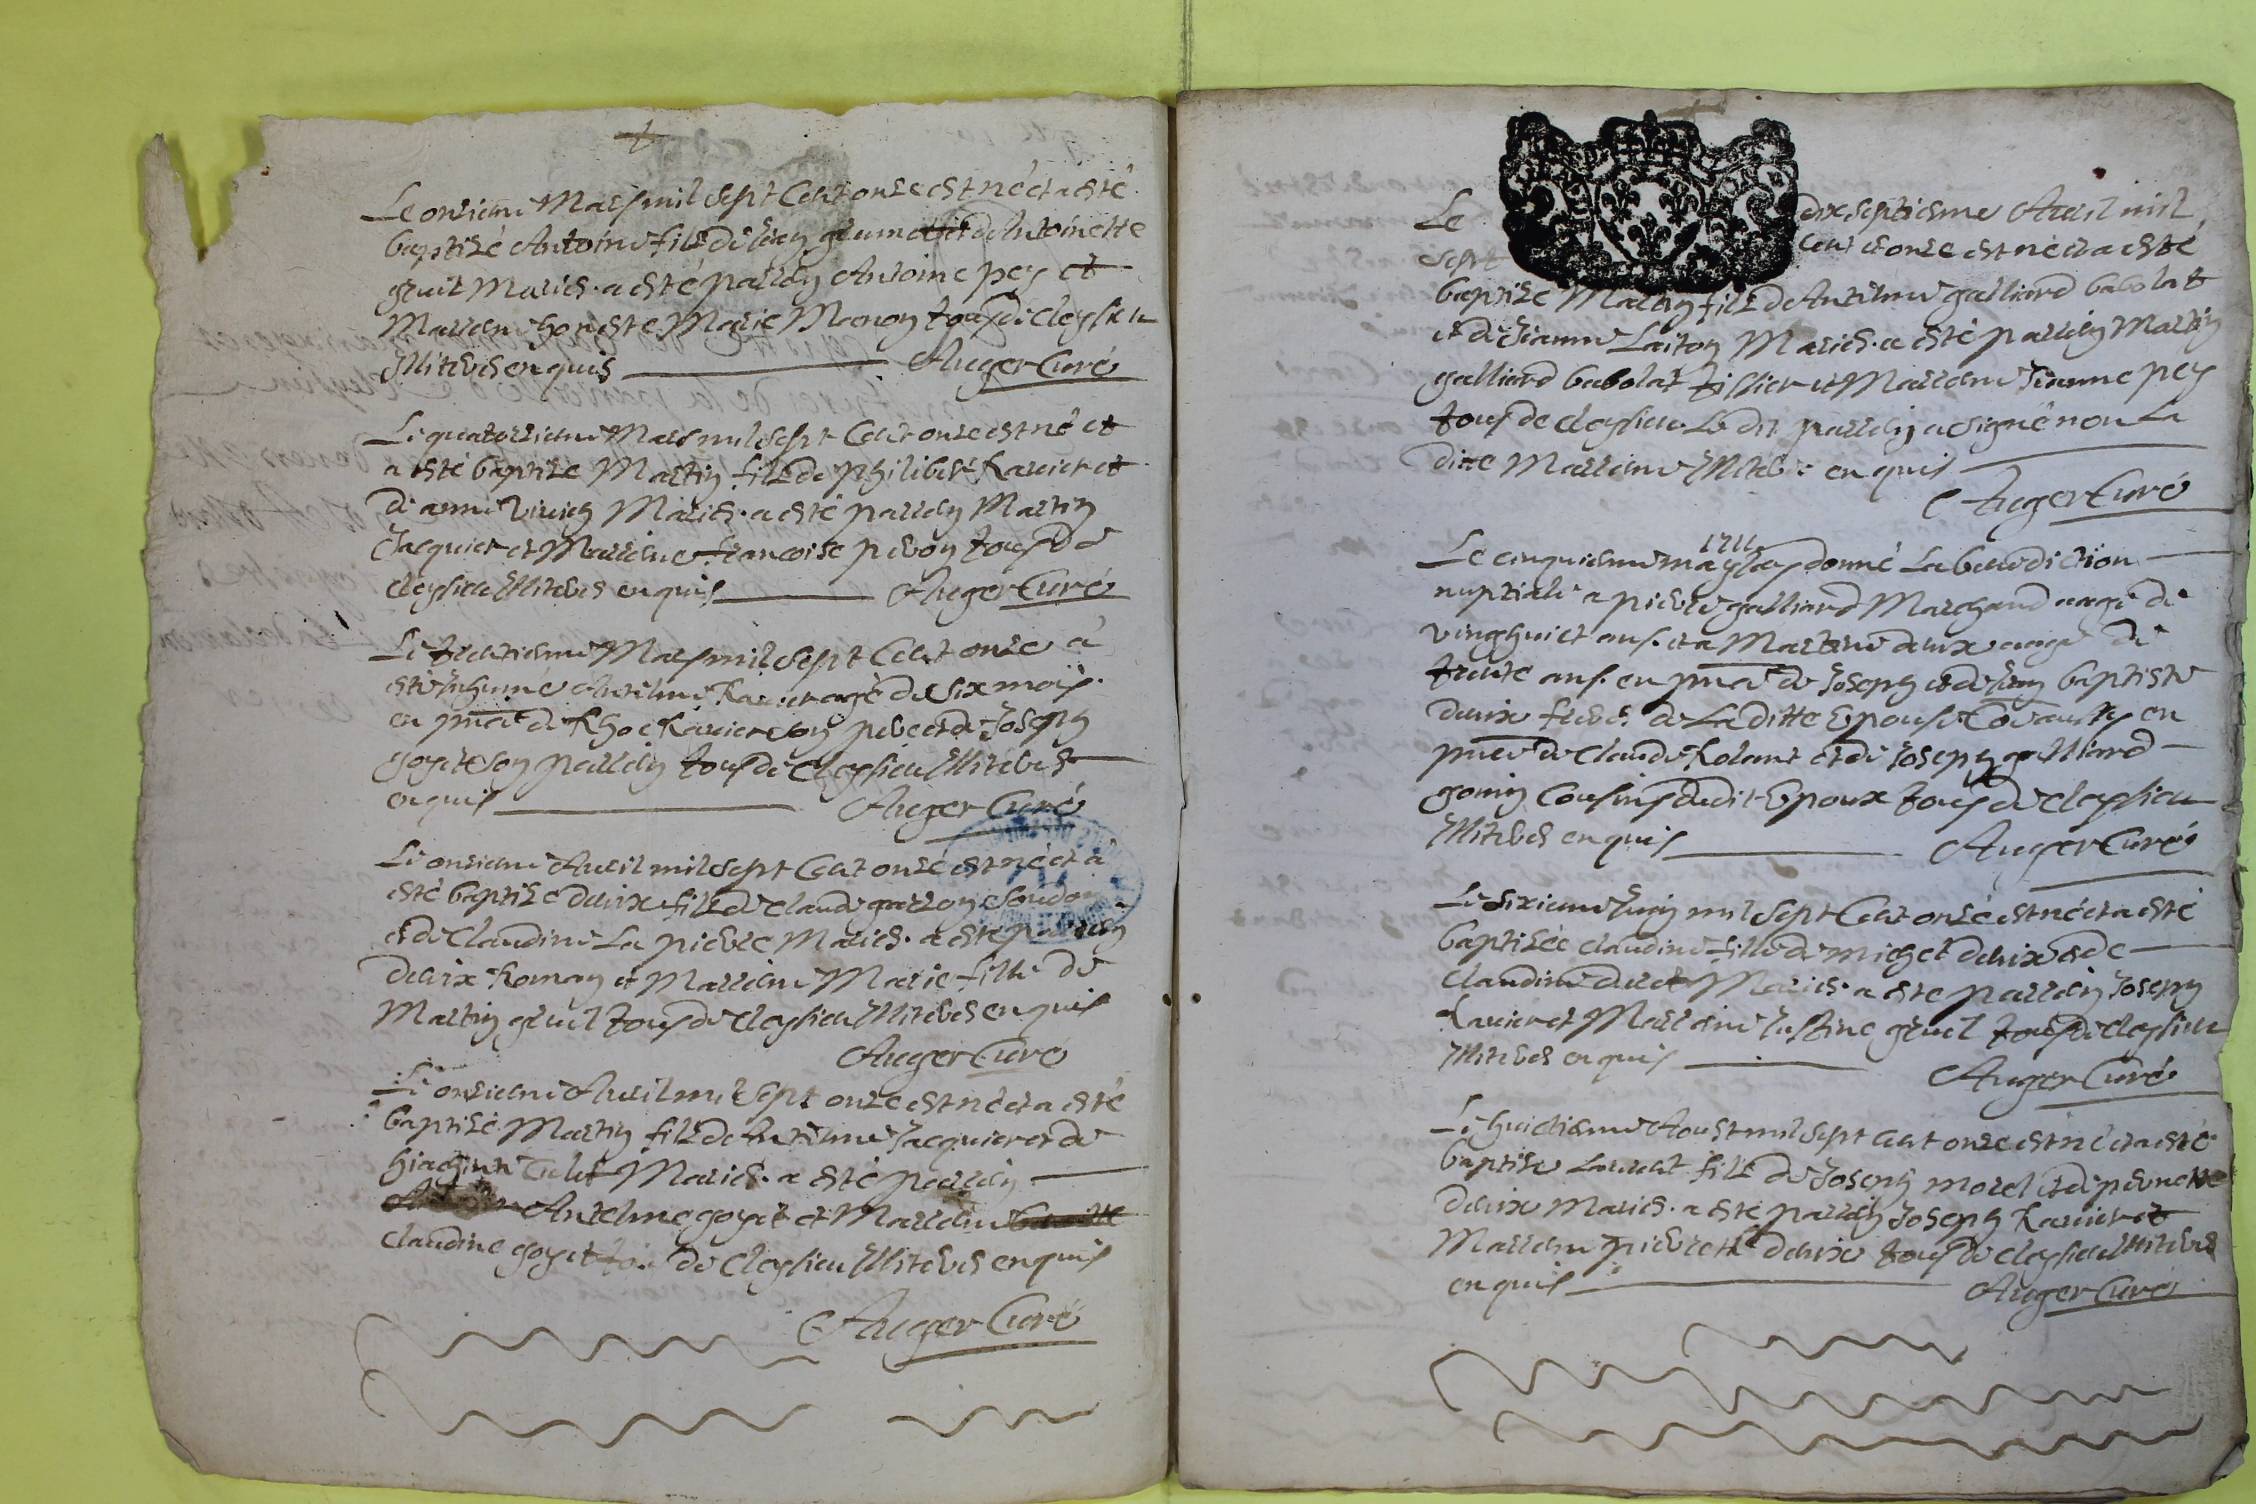 Le onzieme Mars mil sept Cent onze est né et a esté
baptizé Antoine fils de et de Antoinette
gruil Mariés. a esté parrein Antoine pey et
Marreine honeste Marie Monon tous de cleysieu
Illiteres enquis Auger Curé
Le quatorzieme Mars mil sept Cent onze est né et
a esté baptize Martin fils de philibert Ravier et
d'anne Mariés. a esté parrein Martin
Jacquier et Marreine francoise peron tous de
cleysieu Illiteres enquis Auger Curé
Le trentieme Mars mil sept Cent onze a
esté Inhumé Antelme Ravier agé de six mois.
en pnce de Ravier son pere et de Joseph
goyet son parrein tous de cleysieu Illiteres
enquis Auger Curé
Le onzieme Avril mil sept Cent onze est né et a
esté baptizé fils de claude
et de Claudine La pierre Mariés. a esté parrein
Roman et Marreine Marie fille de
Martin gruil tous de cleysieu Illiteres enquis
Auger Curé
Le onzieme Avril mil sept onze est né et a esté
baptizé Martin fils de Antelme Jacquier et de
Mariés. a esté parrein
Antelme goyet et Marreine
claudine goyet de cleysieu Illiteres enquis
Auger Curé
Le dix septieme Avril mil
sept Cent et onze est né et a esté
baptize Martin fils de Antelme galliard babolat
et de Jeanne Laiton Mariés. a esté parrein Martin
galliard babolat tissier et Marreine Jeanne pey
tous de cleysieu Le dit parrein a signé non La
ditte Marreine Illitere enquis
Auger Curé
1711
Le cinquieme may Jay donné La benediction
nuptiale a pierre galliard Marchand aagé de
vinghuict ans. et a Martine aagée de
trente ans. en pnce de Joseph et de Jean baptiste
freres de La ditte Epouse Comaussy en
pnce de claude Rolant et de Joseph galliard
gonin Cousins dudit Epoux tous de cleysieu
Illiteres enquis Auger Curé
Le sixieme Juin mil sept Cent onze est née et a esté
baptizée claudine fille de michel et de
claudine Mariés. a esté parrein Joseph
Ravier et Marreine Justine gruil tous de cleysieu
Illiteres enquis
Auger Curé
Le huictieme Aoust mil sept cent onze est né et a esté
baptize Laurent fils de Joseph morel et de pernette
Mariés. a esté parrein Joseph Ravier et
Marreine pierrette tous de cleysieu Illiteres
enquis Auger Curé